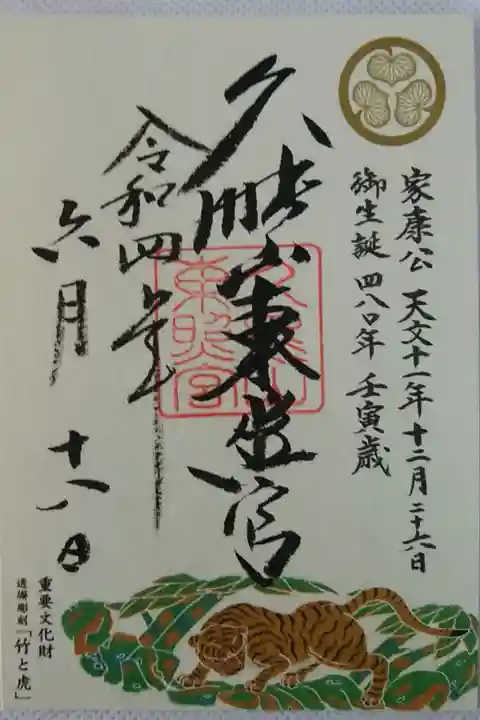 家康公 天文十一年 十二月二十六日
御生誕 四八〇年 壬寅歳
久能山東照宮
令和四年
六月 十八日
重要文化財
透塀彫刻「竹と虎」